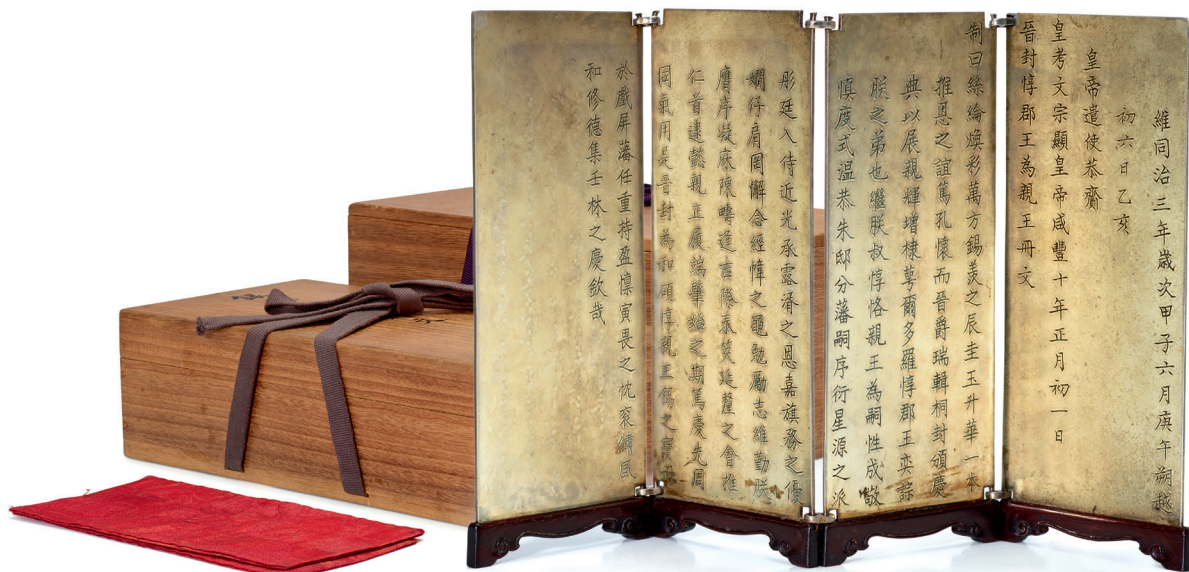 維同治三年歲次甲子六月庚午朔越
初六日乙亥
皇帝遣使恭齋
皇考文宗顯皇帝咸豐十年正月初一日
晉封惇郡王為親王冊文
制曰絲綸煥彩萬方錫羨之辰圭玉升華一本
推恩之誼篤孔懷而晉爵瑞輯桐封頒慶
典以展親輝增棣萼爾多羅惇郡王奕誴
朕之弟也繼朕叔惇恪親王為嗣性成敬
慎度式温恭朱邸分藩嗣序衍星源之派
彤廷入侍近光承露湑之恩嘉旗務之優
嫺仔肩罔懈念經幃之黽勉勵志維勤朕
膺序凝庥陳疇逢吉際泰筴延釐之會推
仁首逮懿親正履端肇始之期篤慶先周
同氣用是晉封為和碩惇親王錫之寶
於戲屏藩任重持盈懍寅畏之忱袞鏽風
和修德集壬林之慶欽哉